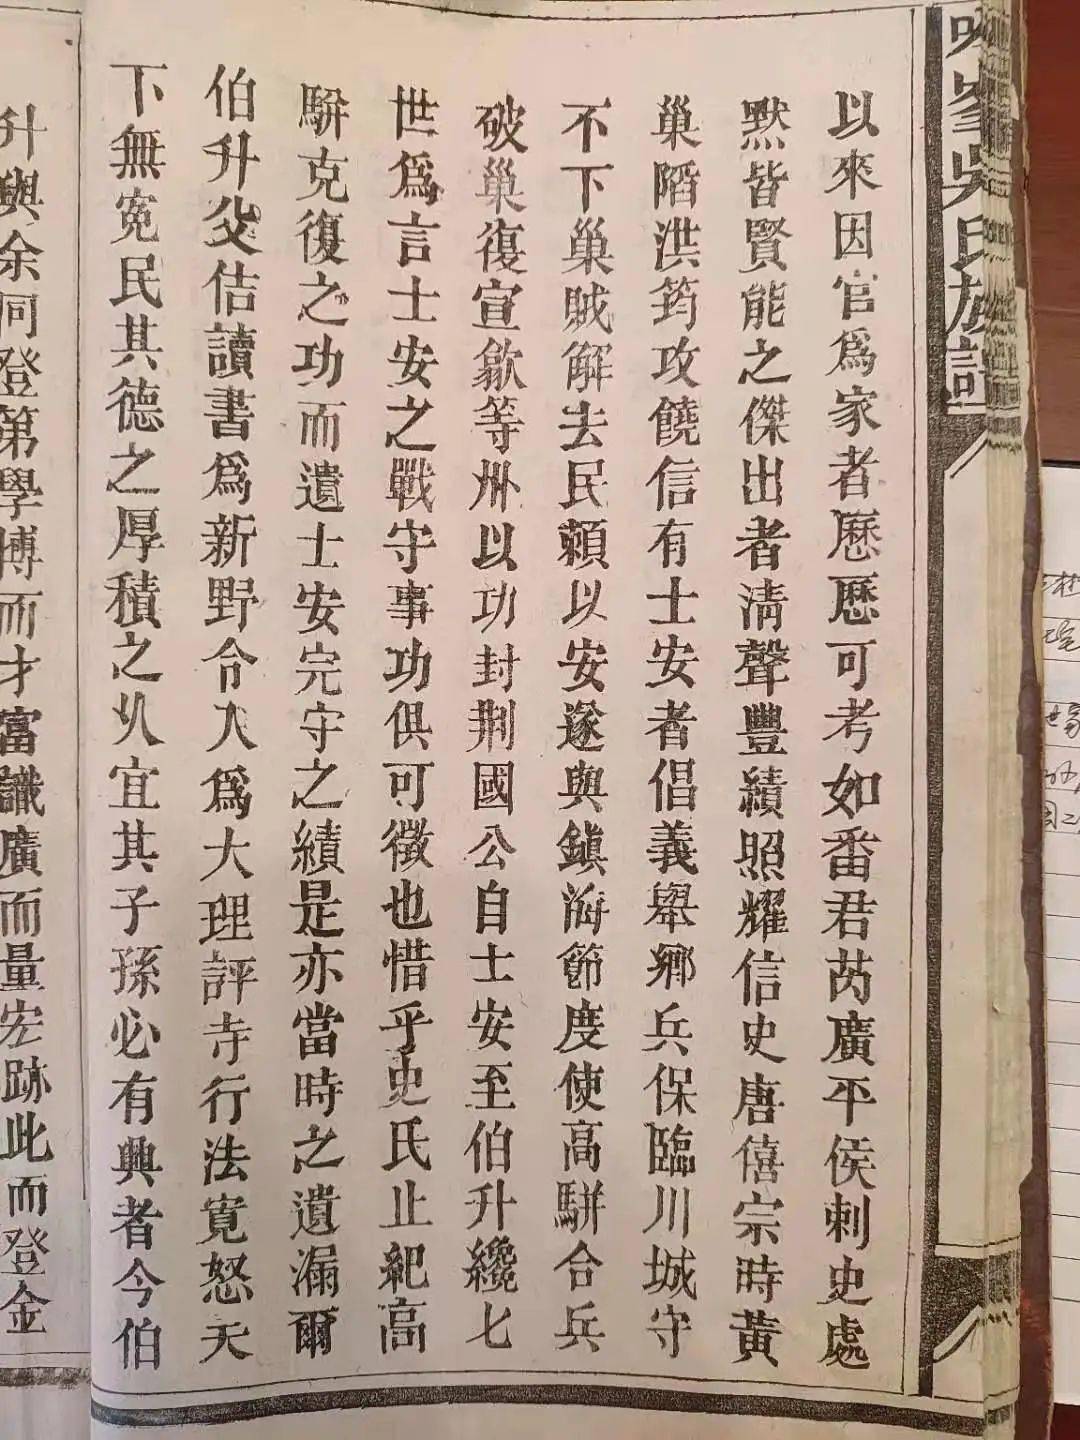 吳氏族譜
以來因官爲家者歷歷可考如番君芮廣平侯刺史處
默皆賢能之傑出者淸聲豐績照耀信史唐僖宗時黃
巢陷洪筠攻饒信有士安者倡義舉鄉兵保臨川城守
不下巢賊解去民賴以安遂與鎭海節度使高駢合兵
破巢復宣歙等州以功封荆國公自士安至伯升纔七
世爲言士安之戰守事功俱可徵也惜乎史氏止紀高
駢克復之功而遺士安完守之績是亦當時之遺漏爾
伯升父佶讀書爲新野令入爲大理評寺行法寛恕天
下無冤民其德之厚積之久宜其子孫必有興者今伯
升與余同登第學博而才富識廣而量宏跡此而登金